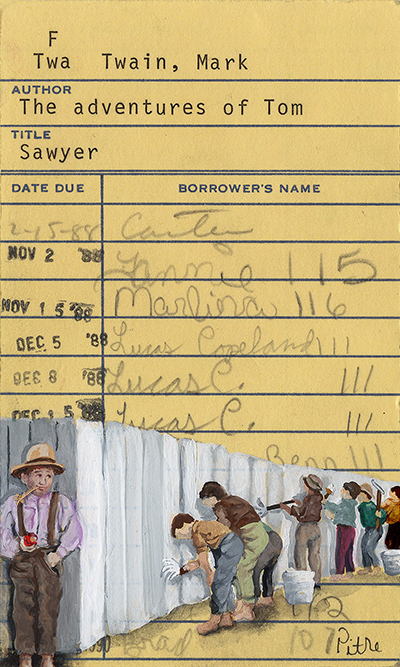 F
Twa Twain, Mark
AUTHOR
The adventures of Tom
TITLE
Sawyer
DATE DUE BORROWER'S NAME
2-15-88
NOV 2 '88 115
NOV 15 '88 116
DEC 5 '88 Lucas Copeland 111
DEC 8 '88 Lucas C. 111
DEC 15 '88 Lucas C. 111
Benn 111
Brad 107
Pitre